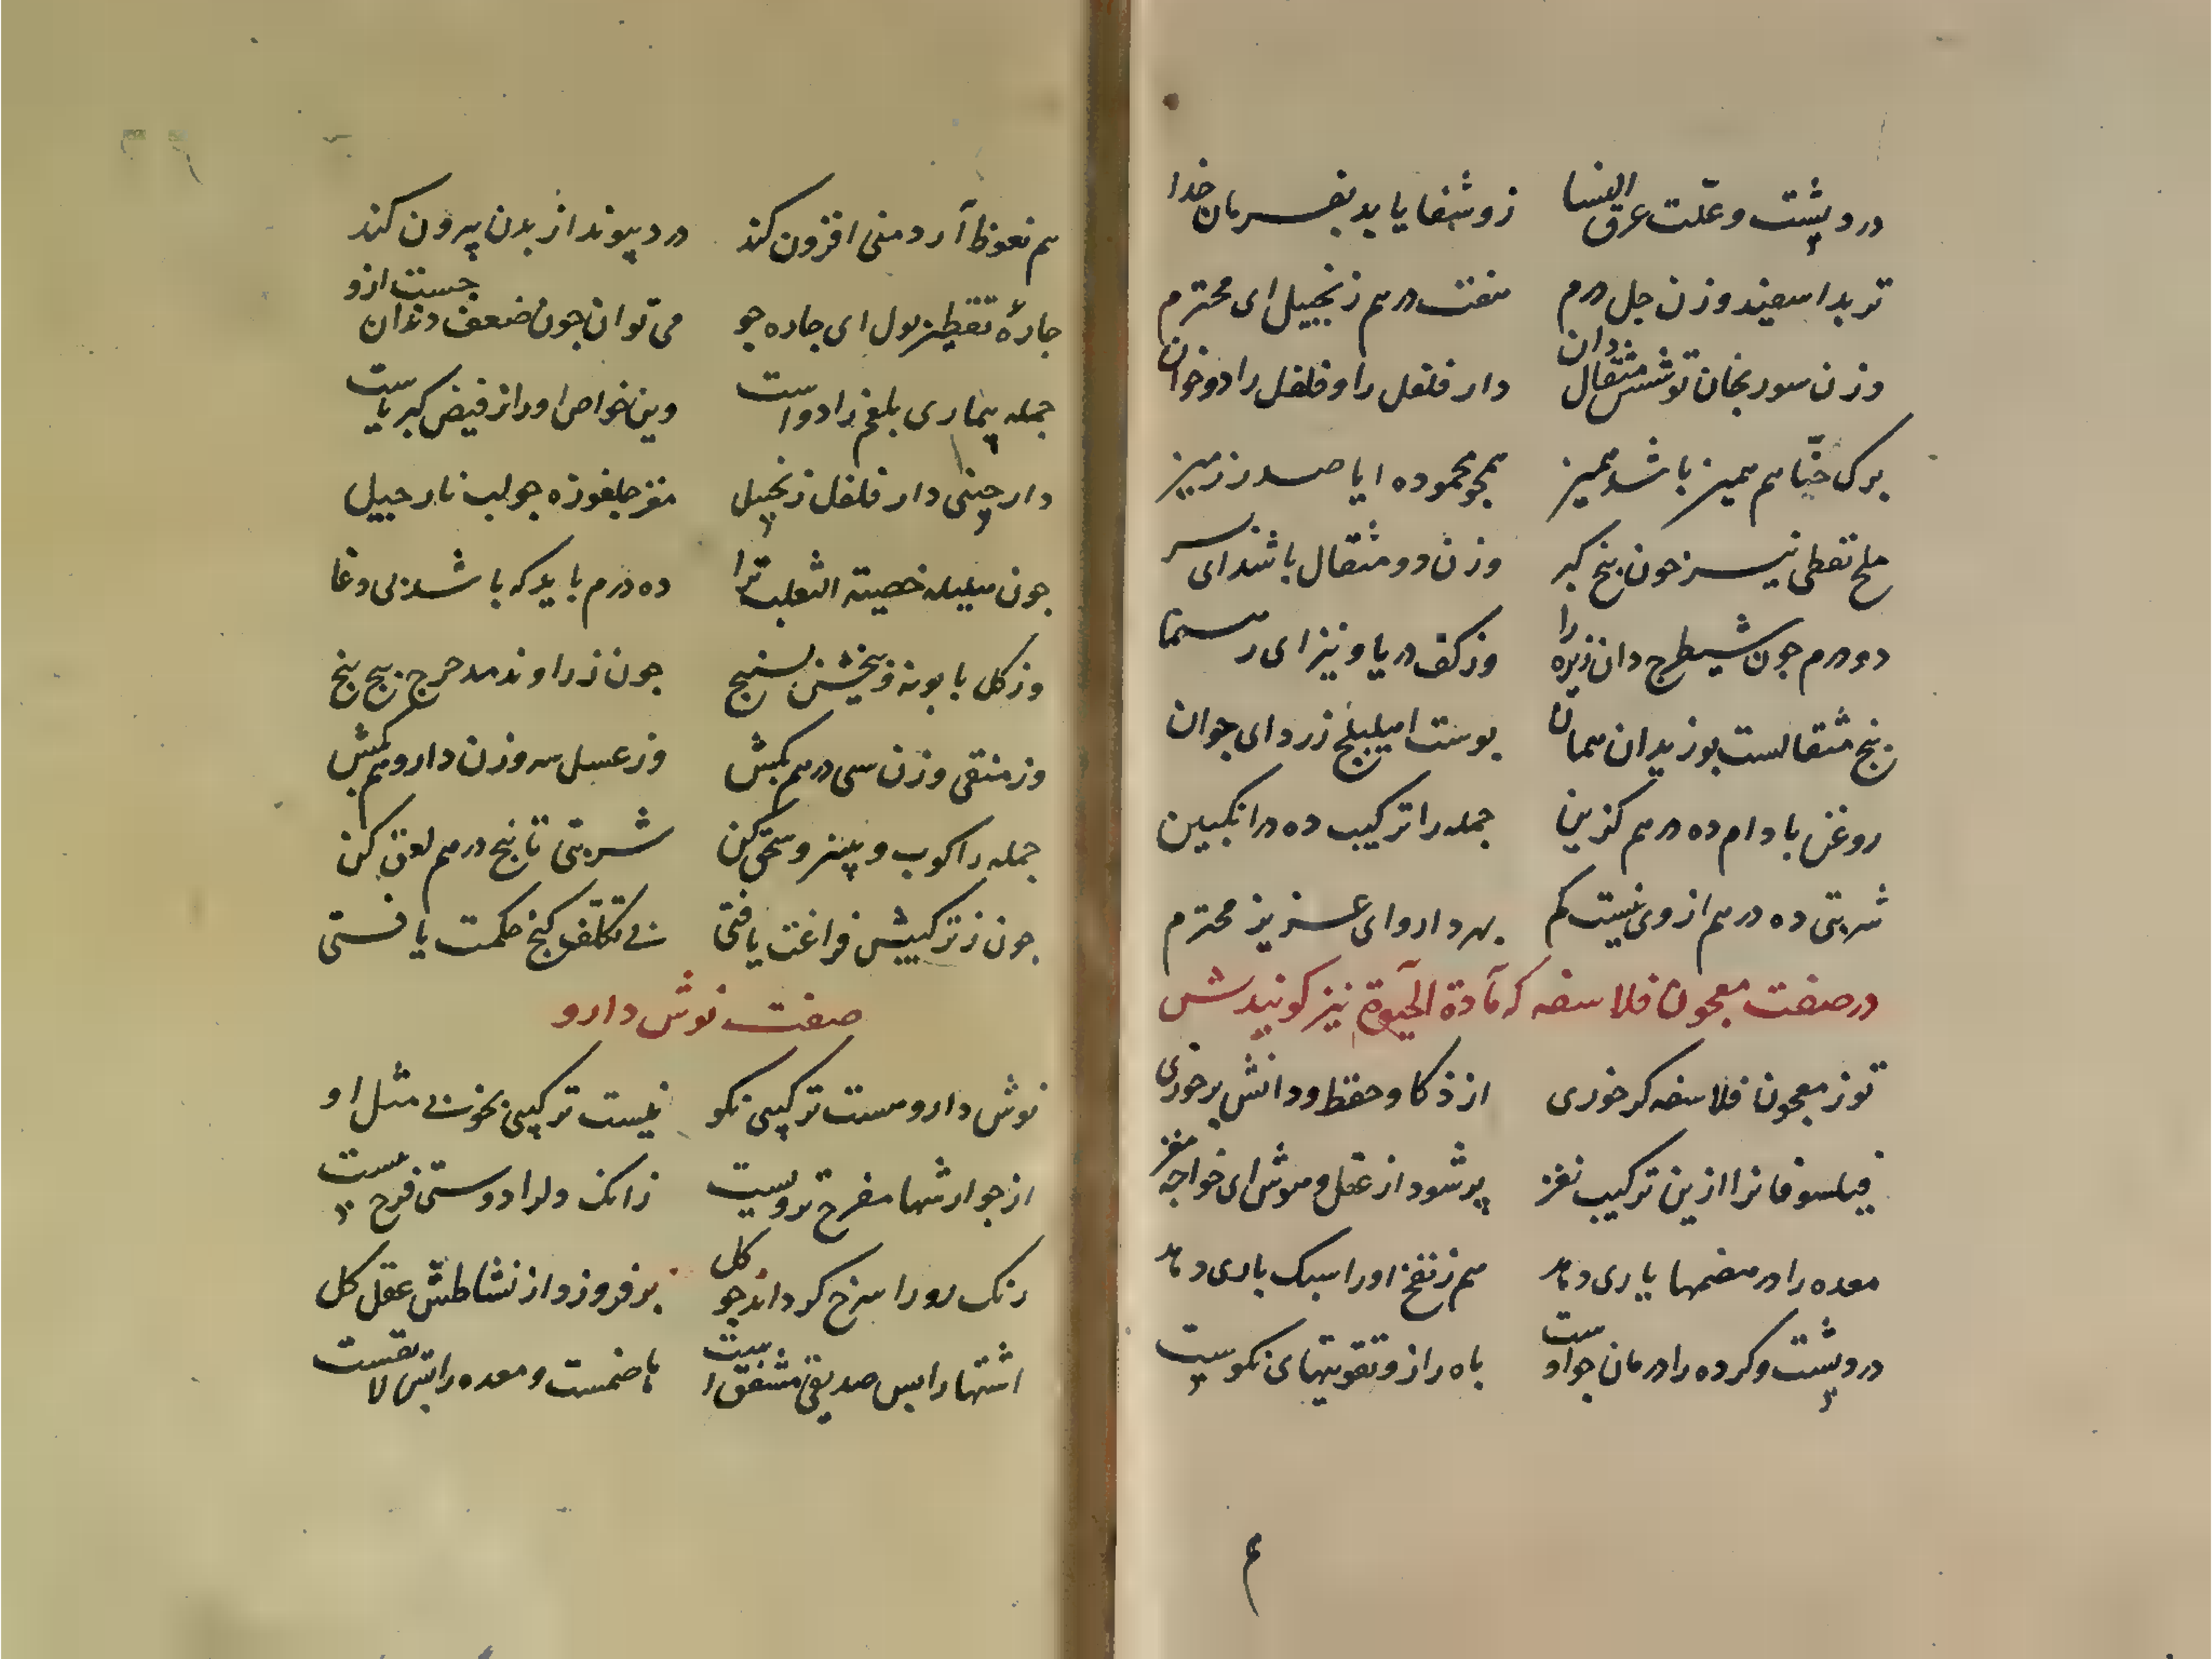 درد پشت و علّت عرق النسا زو شفا یابد بفرمان خدا
تربد اسفیند وزن چل درم هفت درهم زنجبیل ای محترم
وزن سورنجان تو شش مثقال دان دار فلفل را و فلفل را دو خوان
برک حنّا هم همیز باشد همیز همچو محموده ایا صدر زمیز
ملح نفطی نیز چون بیخ کبر وزن دو مثقال باشد ای سر
دو درم چون شیطرج دان زیره را وز کف دریا و نیز ای رهنما
پنج مثقالست بوزیدان همان پوست اهیلیلج زرد ای جوان
روغن بادام ده درهم کزین جمله را ترکیب ده در انکبین
شربتی ده درهم از وی نیست کم بهر دارو ای عزیز محترم
در صفت معجون فلاسفه که مآدة الحیوة نیز کویندش
تو ز معجون فلاسفه کر خوری از ذکا و حفظ و دانش برخوری
فیلسوفانرا ازین ترکیب نغز پر شود از عقل و هوش ای خواجه مغز
معده را در هضمها یاری دهد هم ز نفخ او را سبک باری دهد
درد پشت و کرده را درمان چو اوست باه را از و تقویتهای نکوست
هم نعوظ آرد منی افزون کند درد پیوند از بدن بیرون کند
چارهٔ تقطیر بول ای چاره جو می توان چون ضعف دندان جست ازو
جمله بیماری بلغم را دواست وین خواص او را ز فیض کبریاست
دار چینی دار فلفل زنجبیل مغز جلغوزه چو لب نارجیل
چون هلیله خصیة الثعلب ترا ده درم باید که باشد بی دغا
وز کل بابونه و بیخش بسنج چون زراوند مدحرج پنج پنج
وز منقی وزن سی درهم بکش وز عسل سه وزن دارو هم بکش
جمله را کوب و ببیز و سحق کن شربتی تا پنج درهم لعق کن
چون ز ترکیبش فراغت یافتی بی تکلّف کنج حکمت یافتی
صفت نوش دارو
نوش دارو هست ترکیبی نکو نیست ترکیبی بخوبی مثل او
از جوارشها مفرح تر ویست زانک دلرا دوستی فرخ پیست
رنک رو را سرخ کرداند چو کل بر فروزد از نشاطش عقل کل
اشتها را بس صدیقی مشفق است هاضمست و معده را بس لایقست